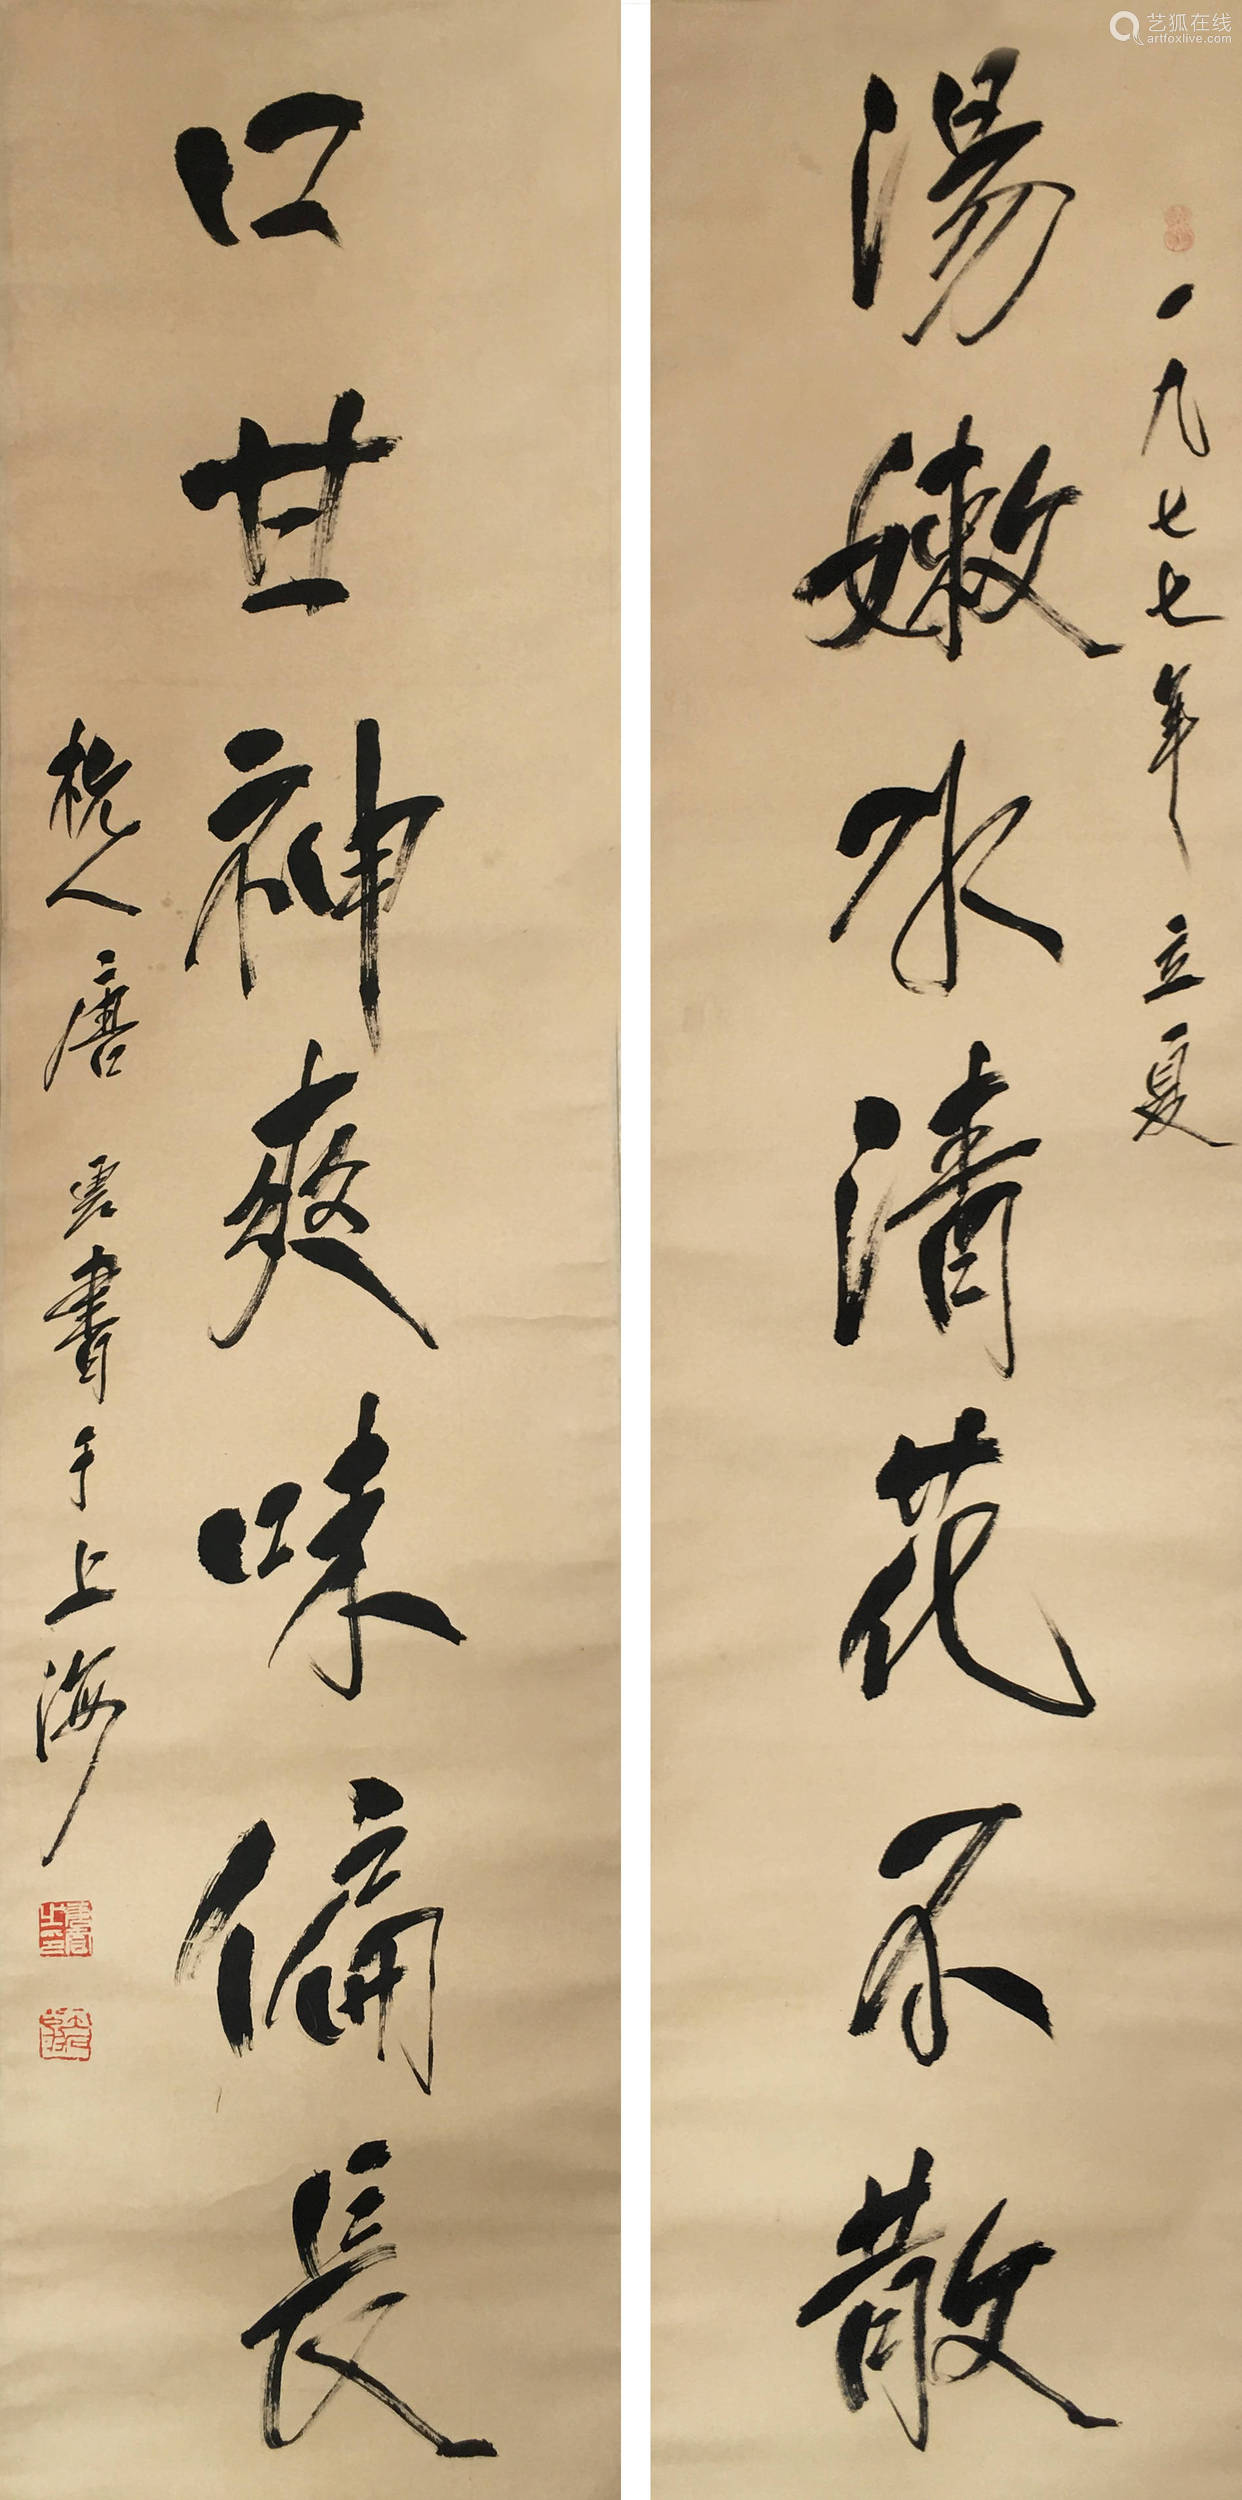 艺狐在线
artfoxlive.com
一九七七年立夏
湯嫩水清花不散
口甘神爽味偏長
杭人唐雲書于上海